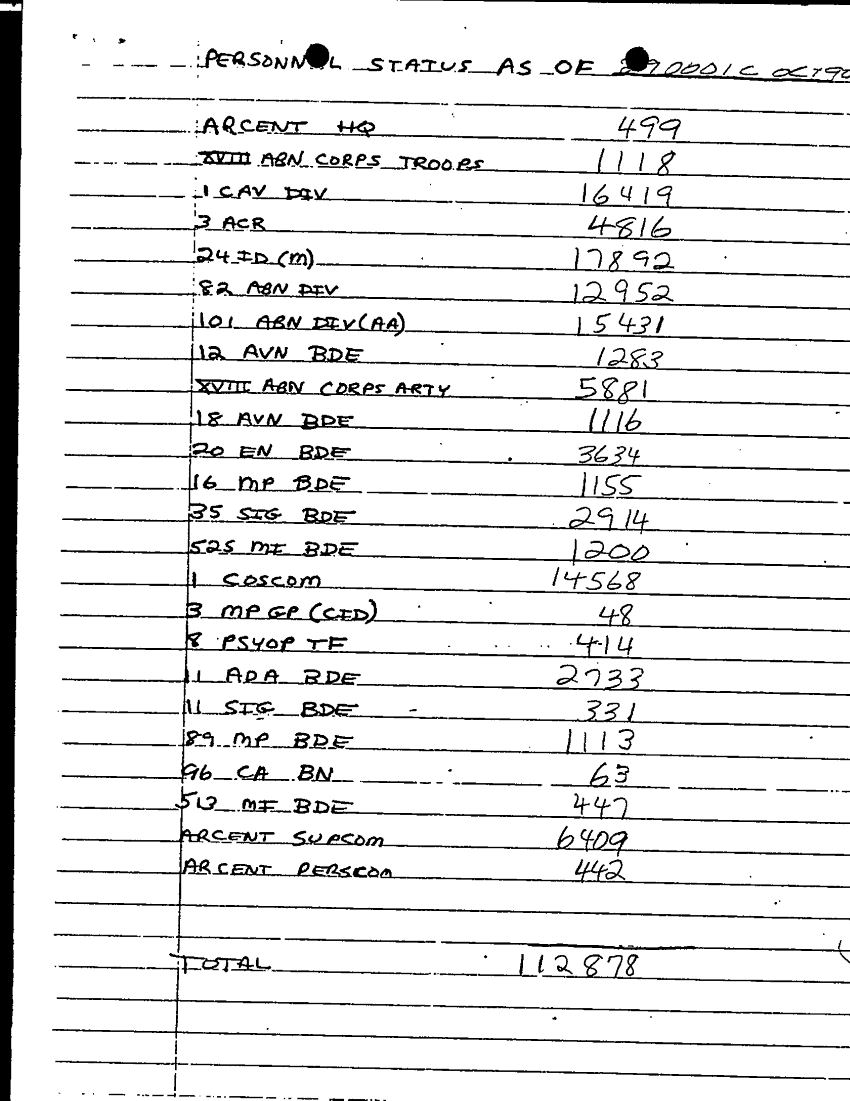 PERSONNEL STATUS AS OF
ARCENT HQ 499
XVIII ABN CORPS TROOPS 1118
1 CAV DIV 16419
3 ACR 4816
24 ID (M) 17892
82 ABN DIV 12952
101 ABN DIV (AA) 15431
12 AVN BDE 1283
XVIII ABN CORPS ARTY 5881
18 AVN BDE 1116
20 EN BDE 3634
16 MP BDE 1155
35 SIG BDE 2914
525 MI BDE 1200
1 COSCOM 14568
3 MP GP (CID) 48
8 PSYOP TF 414
11 ADA BDE 2733
11 SIG BDE 331
89 MP BDE 1113
96 CA BN 63
513 MI BDE 447
ARCENT SUPCOM 6409
ARCENT PERSCOM 442
TOTAL 112878